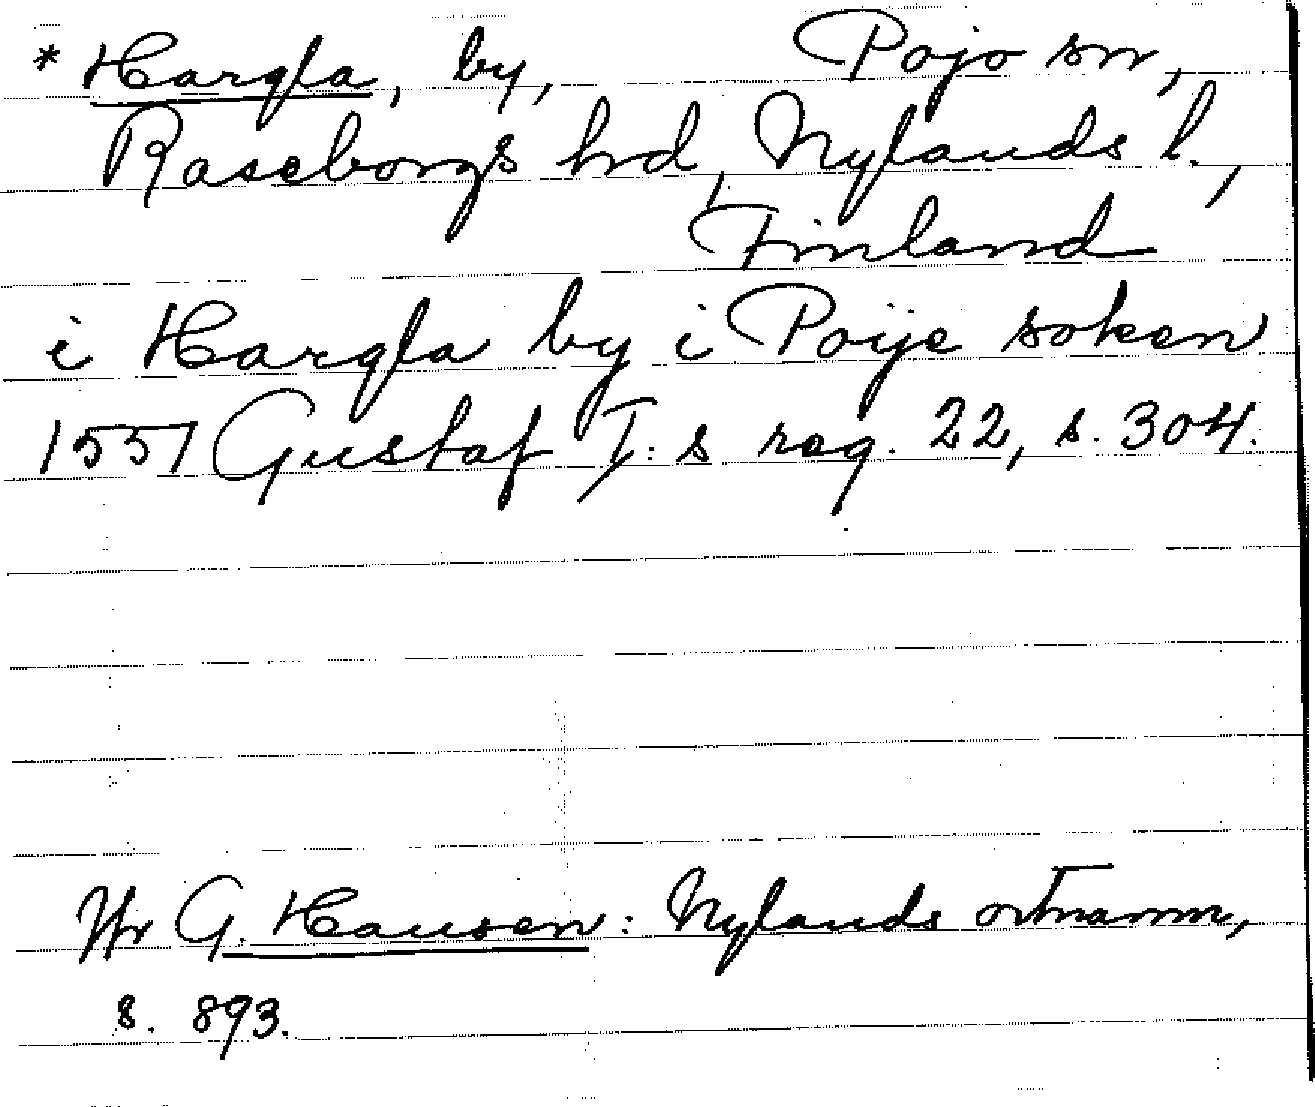 * Hargla, by, Pojo sn,
Raseborgs hrd, Nylands l.,
Finland
i Hargla by i Poije soken
1551 Gustaf I:s reg. 22, s. 304.
Ur G. Hausen: Nylands ortnamn,
s. 893.